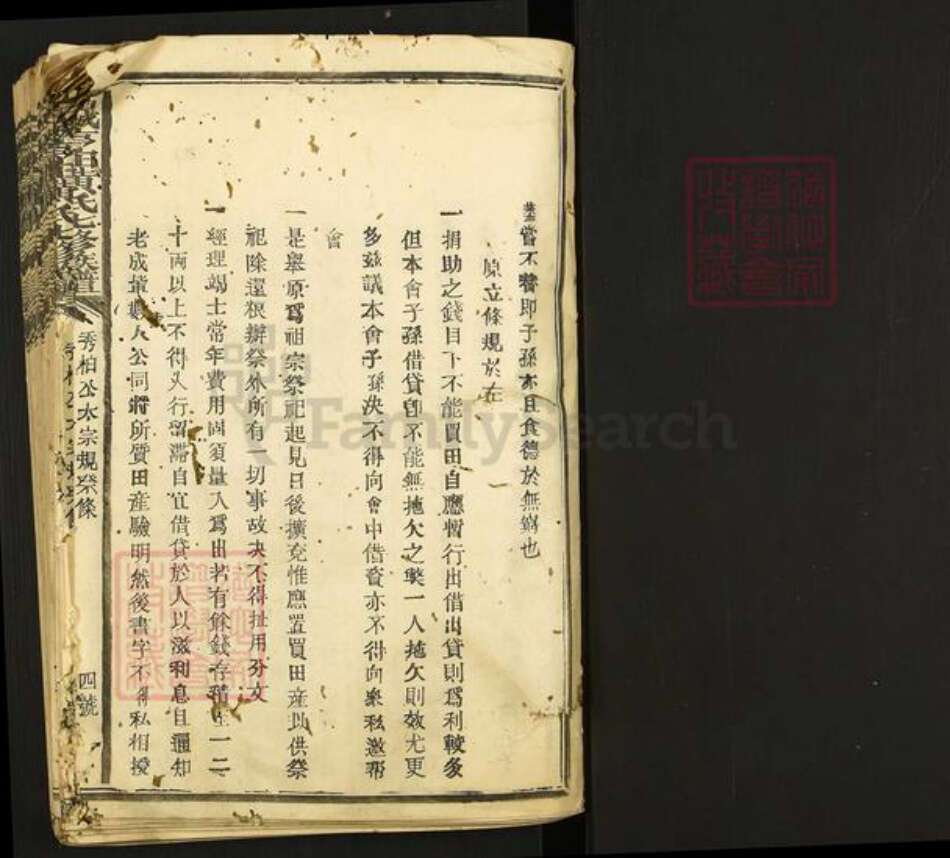 嘗不替即子孫亦且食德於無窮也
原立條規於左
一捐助之錢目下不能買田自應暫行出借出貸則爲利較多
但本會子孫借貸卽不能無拖欠之弊一人拖欠則效尤更
多茲議本會子孫决不得向會中借資亦不得向衆私邀帮
會
一是舉原爲祖宗祭祀起見日後擴充惟應置買田産以供祭
祀除還粮辦祭外所有一切事故决不得扯用分文
一經理竭士常年費用固須量入爲出若有餘錢存積一二
十兩以上不得久行留滯自宜借貸於人以滋利息且通知
老成數人公同將所質田産驗明然後書字不得私相授
黃氏七修族譜
秀柏公大宗規祭條
四號
FamilySearch